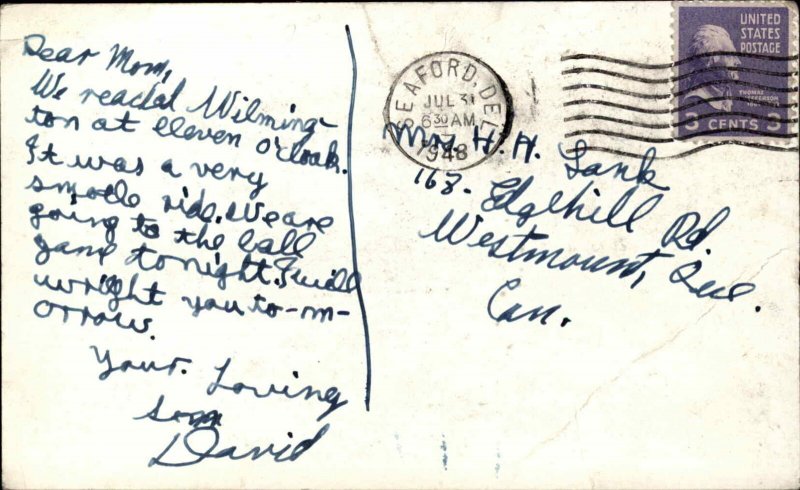 Dear Mom,
We reachd Wilming-
ton at eleven O'cloak.
It was a very
smoole ride. We are
going to the ball
game tonight. I will
wright you to-m-
orrow.
Your. Loving
son
David
SEAFORD, DEL.
JUL 31
6 30 AM
1948
UNITED
STATES
POSTAGE
THOMAS
JEFFERSON
3 CENTS 3
Mrs. H. H. Lank
168. Edgehill Rd.
Westmount, Que.
Can.